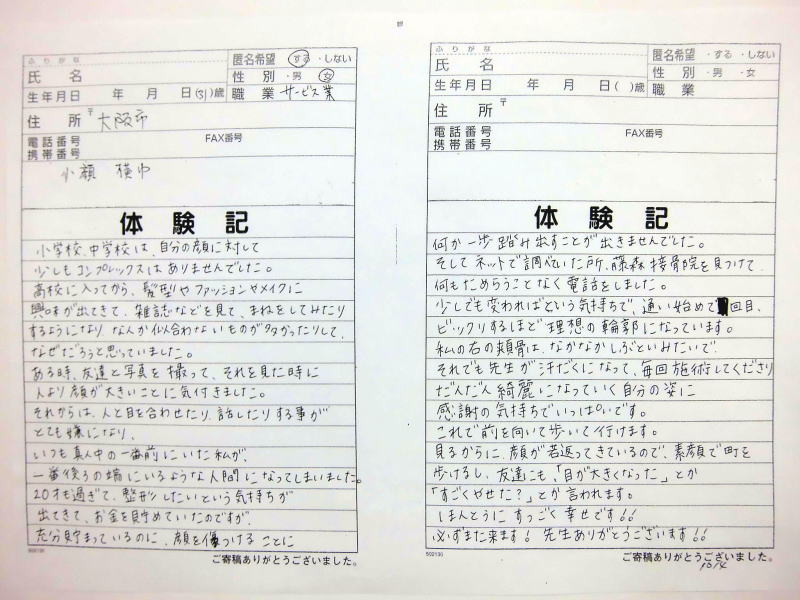 ふりがな
氏 名
匿名希望 ・する ・しない
性 別 ・男 ・女
生年月日 年 月 日(31)歳
職 業 サービス業
住 所 〒 大阪市
電話番号
携帯番号
FAX番号
小顔 横巾
体 験 記
小学校、中学校は、自分の顔に対して
少しもコンプレックスはありませんでした。
高校に入ってから、髪型やファッションやメイクに
興味が出てきて、雑誌などを見て、まねをしてみたり
するようになり、なんか似合わないものが多かったりして、
なぜだろうと思っていました。
ある時、友達と写真を撮って、それを見た時に
人より顔が大きいことに気付きました。
それからは、人と目を合わせたり、話したりする事が
とても嫌になり、
いつも真ん中の一番前にいた私が、
一番後ろの端にいるような人間になってしまいました。
20才も過ぎて、整形したいという気持ちが
出てきて、お金を貯めていたのですが、
充分貯まっているのに、顔を傷つけることに
502130
ご寄稿ありがとうございました。
ふりがな
氏 名
匿名希望 ・する ・しない
性 別 ・男 ・女
生年月日 年 月 日( )歳
職 業
住 所 〒
電話番号
携帯番号
FAX番号
体 験 記
何か一歩踏み出すことが出きませんでした。
そしてネットで調べていた所、藤森接骨院を見つけて、
何もためらうことなく電話をしました。
少しでも変わればという気持ちで、通い始めて回目、
ビックリするほど理想の輪郭になっています。
私の右の頬骨は、なかなかしぶといみたいで、
それでも先生が汗だくになって、毎回施術してくださり
だんだん綺麗になっていく自分の姿に
感謝の気持ちでいっぱいです。
これで前を向いて歩いて行けます。
見るからに、顔が若返ってきているので、素顔で町を
歩けるし、友達にも、「目が大きくなった」とか
「すごくやせた?」とか言われます。
ほんとうにすっごく幸せです!!
必ずまた来ます! 先生ありがとうございます!!
502130
ご寄稿ありがとうございました。
10/4